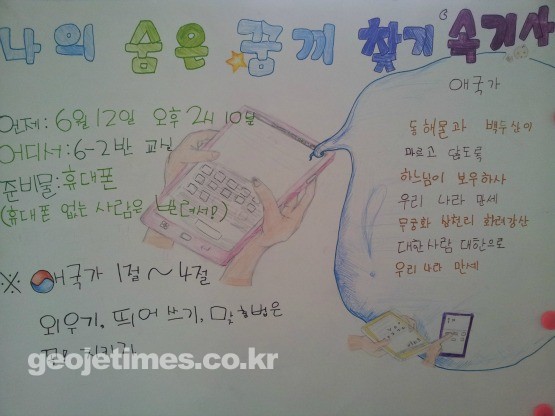 나의 숨은 꿈끼 찾기 속기사
언제: 6월 12일 오후 2시 10분
어디서: 6-2반 교실
준비물: 휴대폰
(휴대폰 없는 사람은
※ 애국가 1절~4절
외우기, 띄어쓰기, 맞춤법은
geojetimes.co.kr
애국가
동해물과 백두산이
마르고 닳도록
하느님이 보우하사
우리 나라 만세
무궁화 삼천리 화려강산
대한사람 대한으로
우리 나라 만세